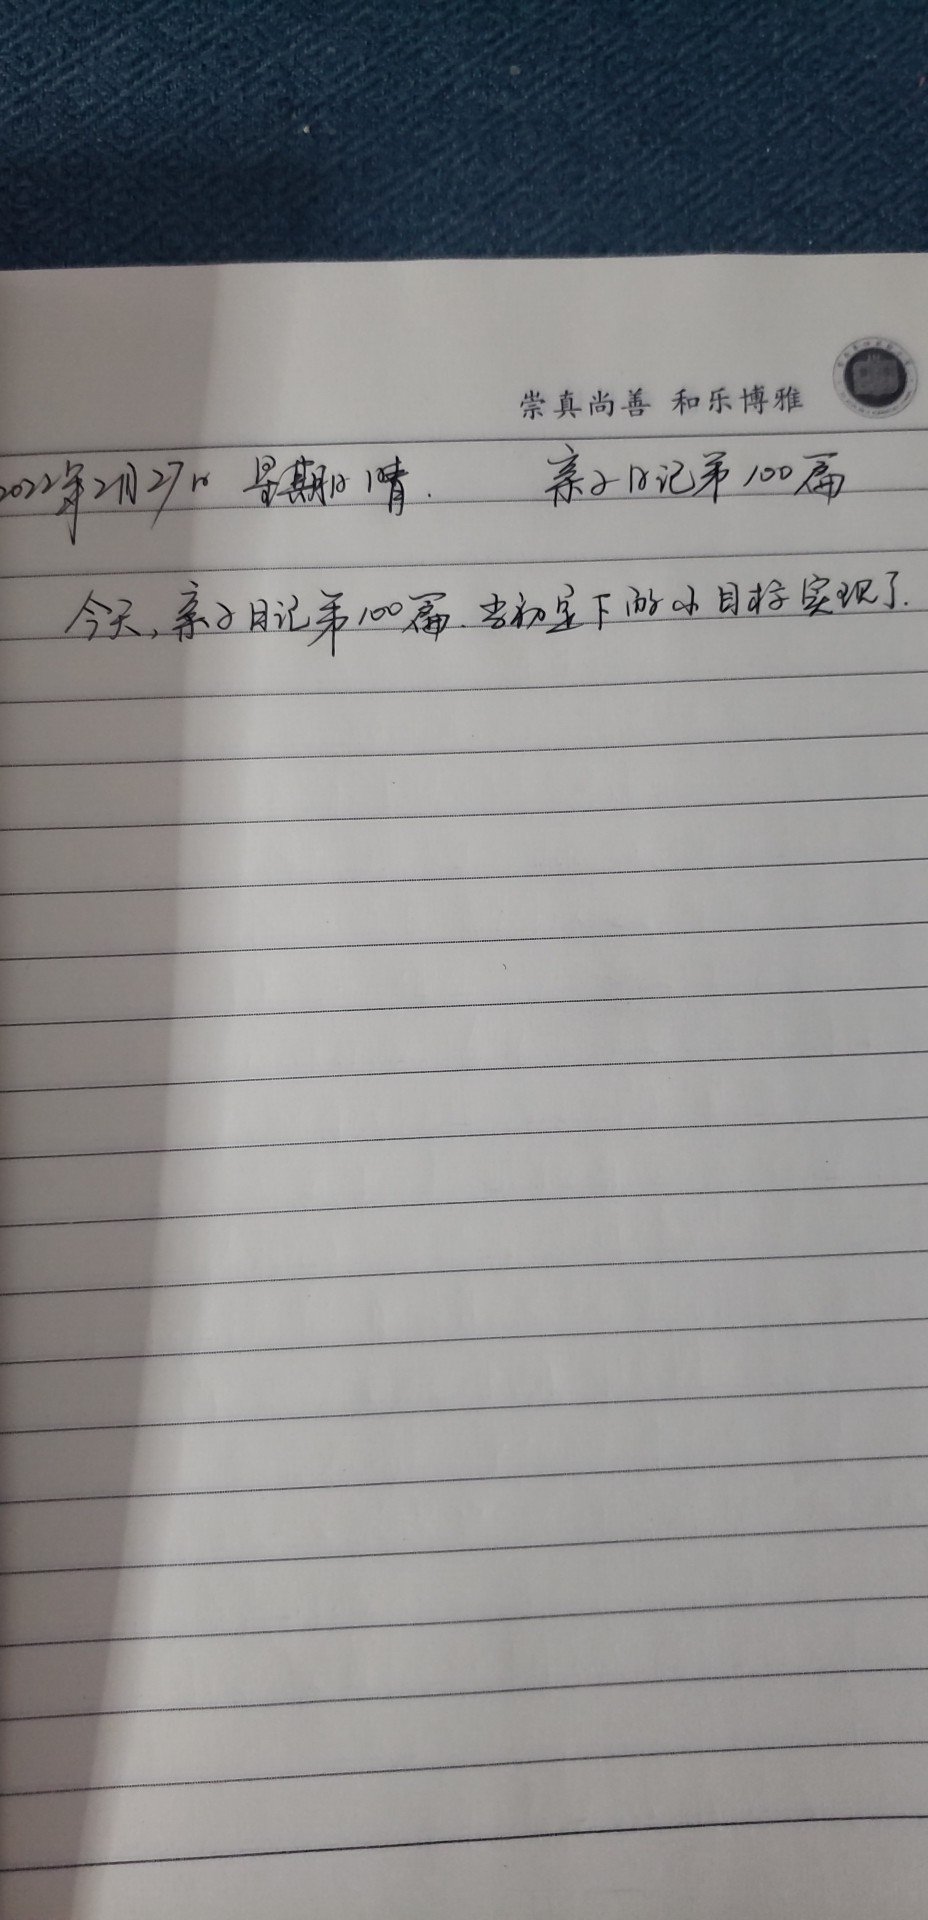 崇真尚善 和乐博雅
2022年2月27日 星期日 晴. 亲子日记第100篇
今天,亲子日记第100篇.当初定下的小目标实现了.